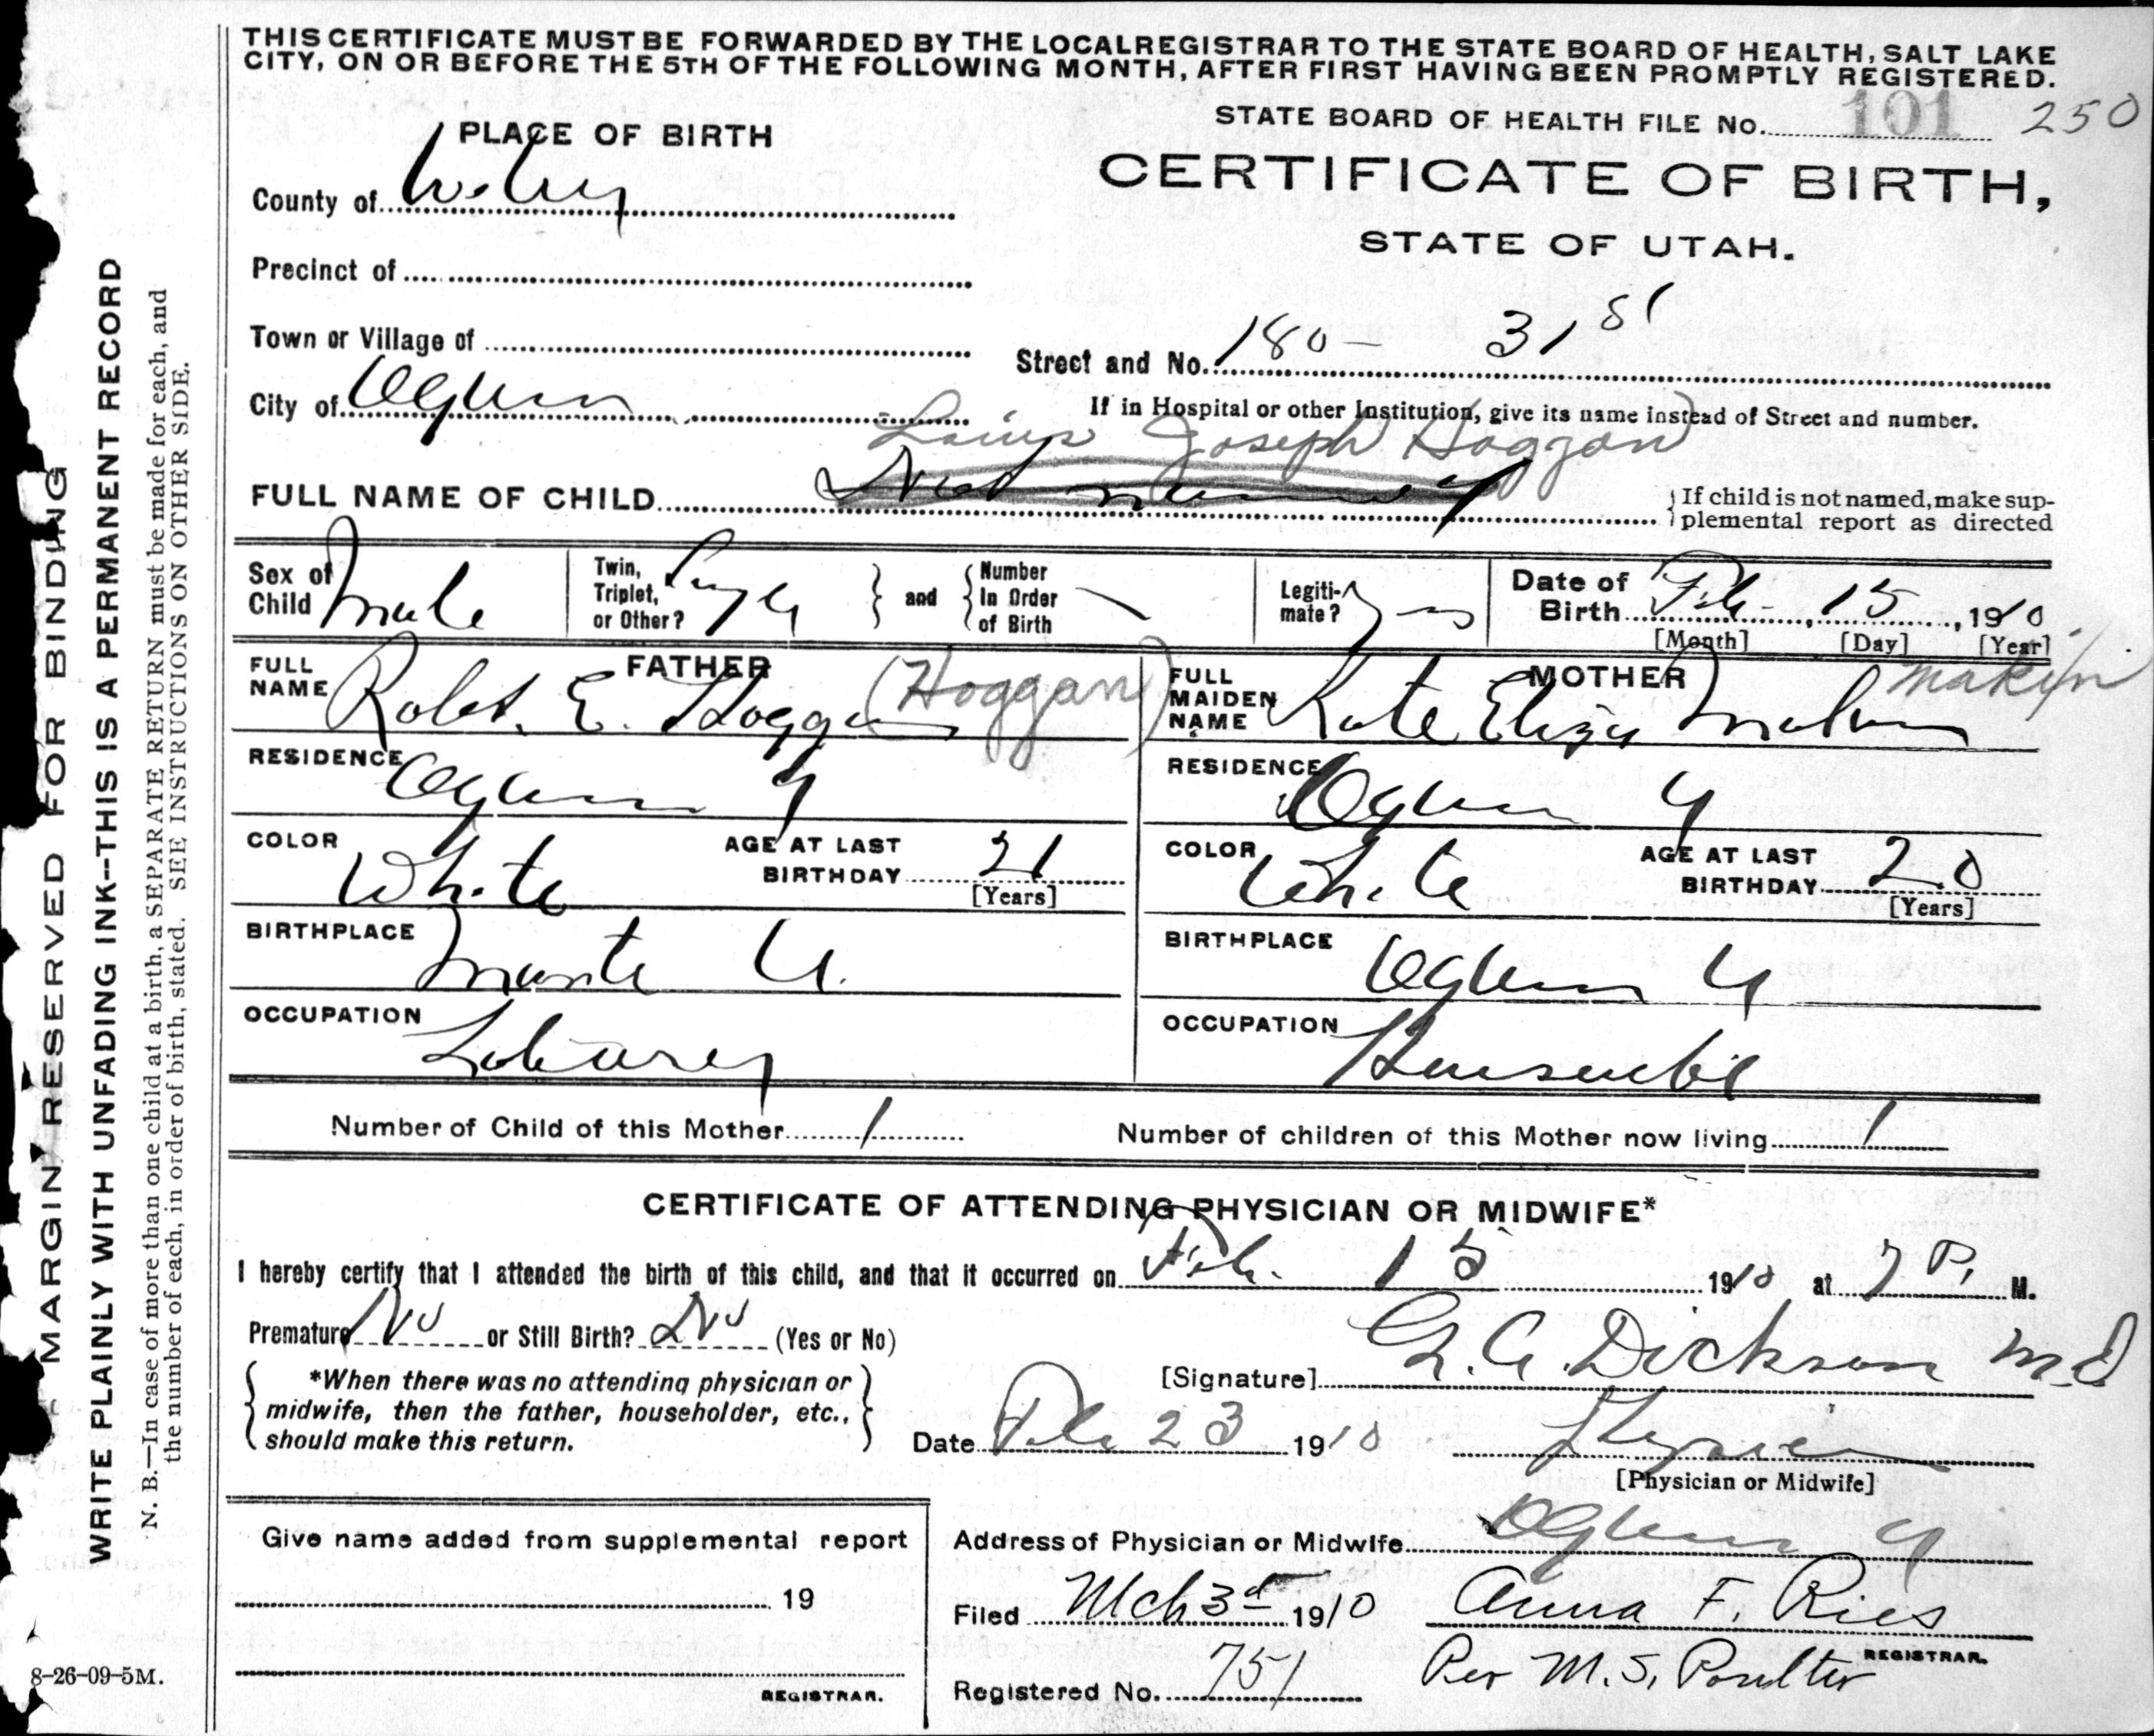 THIS CERTIFICATE MUST BE FORWARDED BY THE LOCAL REGISTRAR TO THE STATE BOARD OF HEALTH, SALT LAKE
CITY, ON OR BEFORE THE 5TH OF THE FOLLOWING MONTH, AFTER FIRST HAVING BEEN PROMPTLY REGISTERED.
STATE BOARD OF HEALTH FILE No. 101 250
PLACE OF BIRTH
CERTIFICATE OF BIRTH,
County of Weber
STATE OF UTAH.
Precinct of
Town or Village of
Street and No. 180 - 31 St
City of Ogden
If in Hospital or other Institution, give its name instead of Street and number.
Joseph Hoggan
FULL NAME OF CHILD Not
If child is not named, make sup-
plemental report as directed
Sex of Child Male
Twin, Triplet, or Other? Single
and
Number In Order of Birth
Legiti-mate? yes
Date of Birth Feb. 15, 1910
[Month] [Day] [Year]
FATHER
FULL NAME Robt. E. Hoggan (Hoggan)
MOTHER
FULL MAIDEN NAME Kate Eliza Makin
RESIDENCE Ogden U
RESIDENCE Ogden U
COLOR White
AGE AT LAST BIRTHDAY 21
[Years]
COLOR White
AGE AT LAST BIRTHDAY 20
[Years]
BIRTHPLACE Manti U.
BIRTHPLACE Ogden U
OCCUPATION Laborer
OCCUPATION Housewife
Number of Child of this Mother 1
Number of children of this Mother now living 1
CERTIFICATE OF ATTENDING PHYSICIAN OR MIDWIFE*
I hereby certify that I attended the birth of this child, and that it occurred on Feb. 15 1910 at 7 P. M.
Premature No or Still Birth? No (Yes or No)
[Signature] G. A. Dickson M.d
*When there was no attending physician or
midwife, then the father, householder, etc.,
should make this return.
Date Feb 23 1910
Physician
[Physician or Midwife]
Give name added from supplemental report
19
REGISTRAR.
Address of Physician or Midwife Ogden U
Filed Mch 3d 1910 Anna F. Ries
REGISTRAR.
Registered No. 751 Per M. S. Poulter
MARGIN RESERVED FOR BINDING
WRITE PLAINLY WITH UNFADING INK--THIS IS A PERMANENT RECORD
N. B.—In case of more than one child at a birth, a SEPARATE RETURN must be made for each, and
the number of each, in order of birth, stated. SEE INSTRUCTIONS ON OTHER SIDE.
8-26-09-5M.